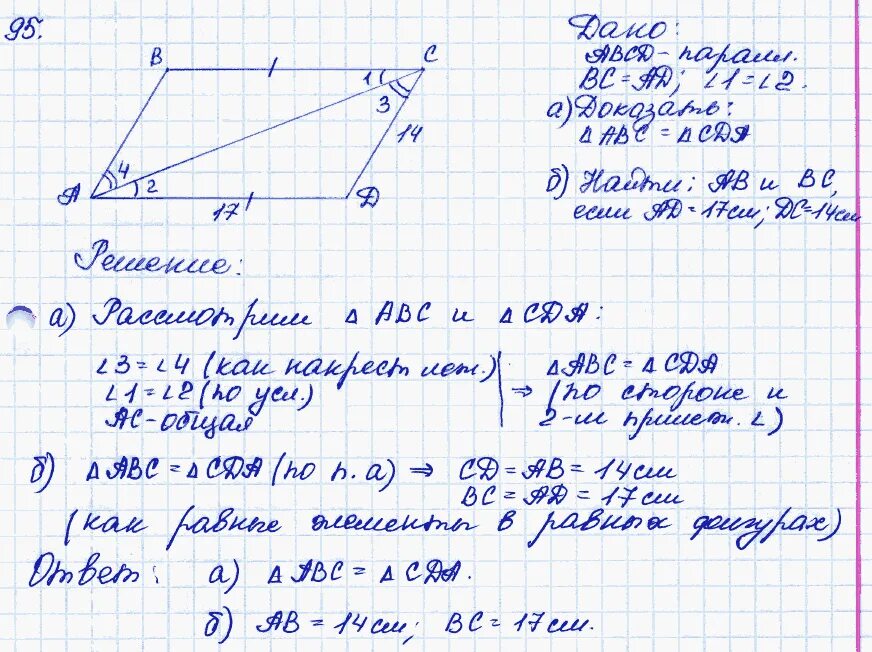 95.
B
C
1
3
14
4
2
A
17
D
Дано:
ABCD - паралл.
BC = AD; ∠1 = ∠2.
а) Доказать:
△ABC = △CDA
б) Найти: AB и BC,
если AD = 17см; DC = 14см
Решение:
а) Рассмотрим △ABC и △CDA:
∠3 = ∠4 (как накрест леж.)
∠1 = ∠2 (по усл.)
AC - общая
⇒
△ABC = △CDA
(по стороне и
2-м прилеж. ∠)
б) △ABC = △CDA (по п. а) ⇒ CD = AB = 14см
BC = AD = 17см
(как равные элементы в равных фигурах)
Ответ: а) △ABC = △CDA.
б) AB = 14см; BC = 17см.